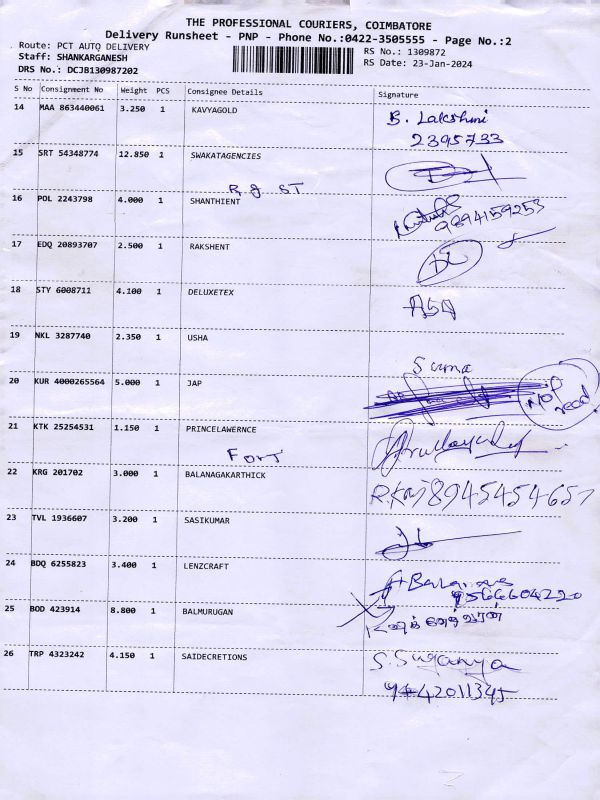 THE PROFESSIONAL COURIERS, COIMBATORE
Delivery Runsheet - PNP - Phone No.:0422-3505555 - Page No.:2
Route: PCT AUTO DELIVERY
RS No.: 1309872
Staff: SHANKARGANESH
RS Date: 23-Jan-2024
DRS No.: DCJB130987202
S No Consignment No Weight PCS Consignee Details Signature
14 MAA 863440061 3.250 1 KAVYAGOLD B. Lakshmi
2395733
15 SRT 54348774 12.850 1 SWAKATAGENCIES
R.G ST
16 POL 2243798 4.000 1 SHANTHIENT 9894159253
17 EDQ 20893707 2.500 1 RAKSHENT
18 STY 6008711 4.100 1 DELUXETEX
19 NKL 3287740 2.350 1 USHA
Suma
20 KUR 4000265564 5.000 1 JAP
21 KTK 25254531 1.150 1 PRINCELAWERNCE
FORT
22 KRG 201702 3.000 1 BALANAGAKARTHICK
23 TVL 1936607 3.200 1 SASIKUMAR
24 BDQ 6255823 3.400 1 LENZCRAFT
9566604220
25 BOD 423914 8.800 1 BALMURUGAN
26 TRP 4323242 4.150 1 SAIDECRETIONS S. Suganya
42011345